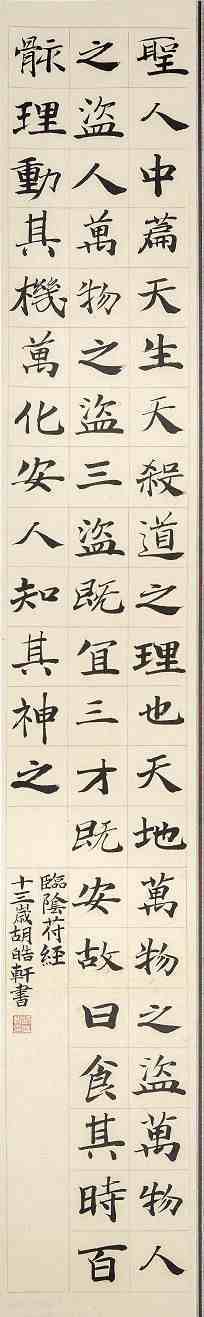 聖人中篇天生天殺道之理也天地萬物之盜萬物人
之盜人萬物之盜三盜既宜三才既安故曰食其時百
骸理動其機萬化安人知其神之
臨陰符經
十三歲胡皓軒書